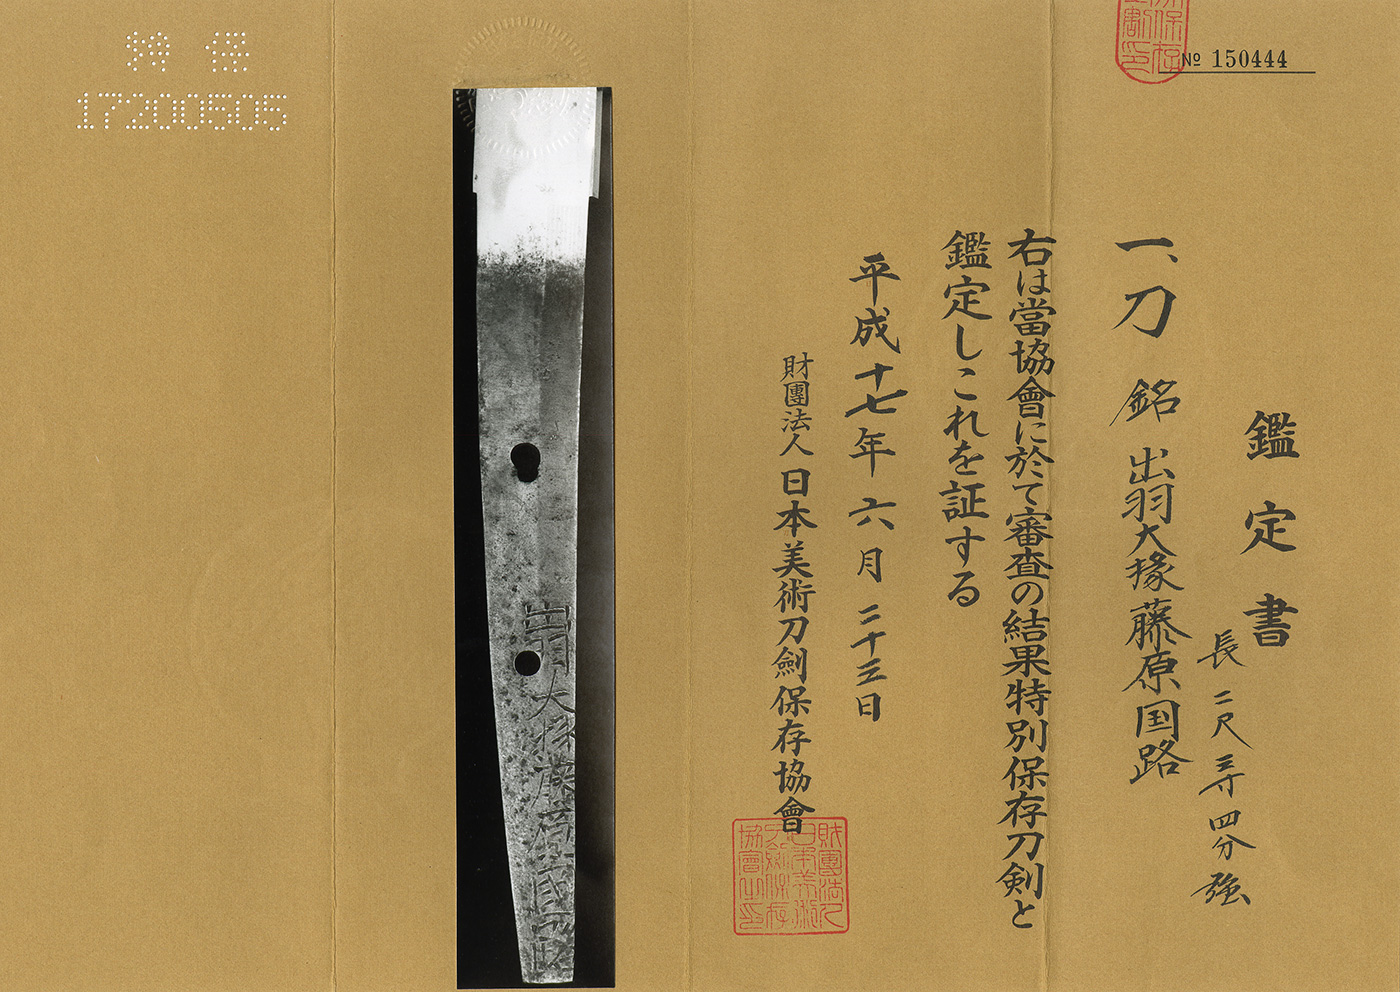 No 150444
鑑定書
長二尺三寸四分強
一、刀 銘 出羽大掾藤原国路
右は當協會に於て審査の結果特別保存刀剣と
鑑定しこれを証する
平成十七年六月二十三日
財團法人 日本美術刀劍保存協會
財團法人
日本美術
刀劍保存
協會之印
出羽大掾藤原国路
特保
17200505